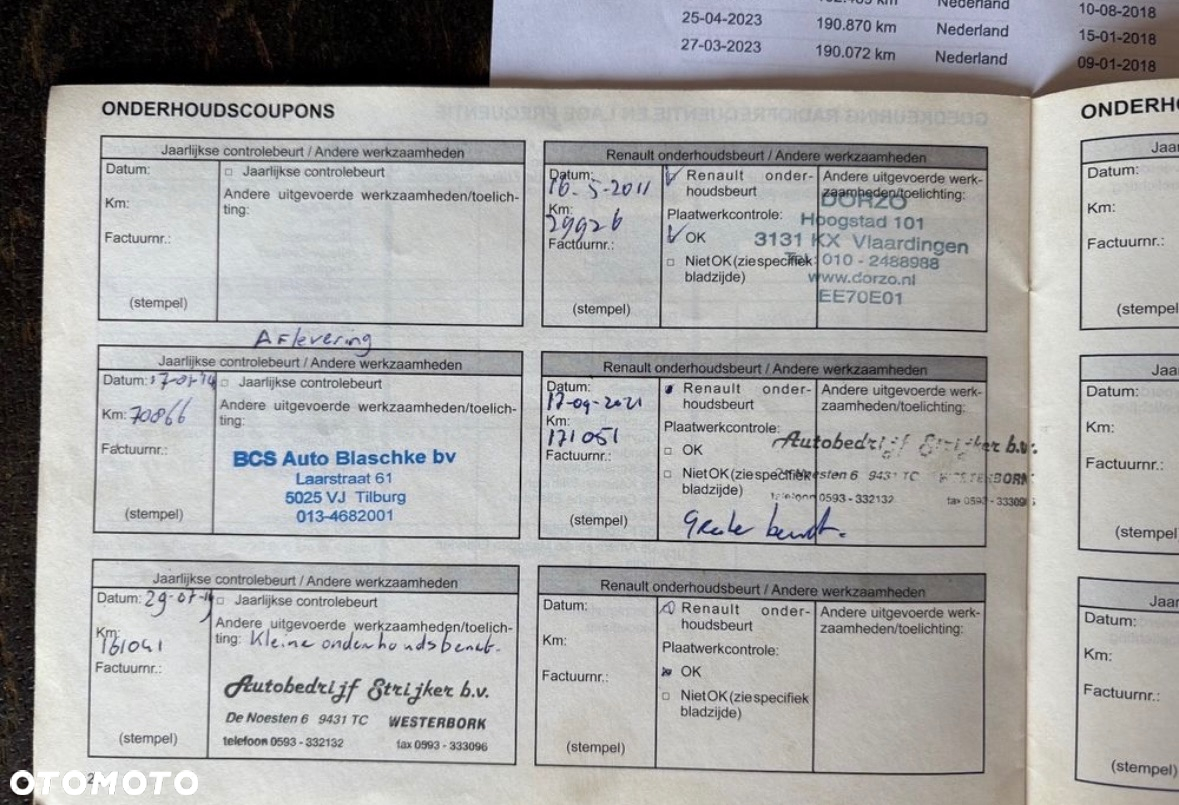 25-04-2023 190.870 km Nederland
27-03-2023 190.072 km Nederland
Nederland
10-08-2018
15-01-2018
09-01-2018
ONDERHOUDSCOUPONS
Jaarlijkse controlebeurt / Andere werkzaamheden
Datum:
Km:
Factuurnr.:
(stempel)
□ Jaarlijkse controlebeurt
Andere uitgevoerde werkzaamheden/toelich-
ting:
Renault onderhoudsbeurt / Andere werkzaamheden
Datum:
16-5-2011
Km:
29926
Factuurnr.:
(stempel)
Renault onder-
houdsbeurt
Plaatwerkcontrole:
OK
□ Niet OK (zie specifiek
bladzijde)
Andere uitgevoerde werk-
zaamheden/toelichting:
DORZO
Hoogstad 101
3131 KX Vlaardingen
Tel. 010 - 2488988
www.dorzo.nl
EE70E01
Aflevering
Jaarlijkse controlebeurt / Andere werkzaamheden
Datum:
Km: 70866
Factuurnr.:
(stempel)
□ Jaarlijkse controlebeurt
Andere uitgevoerde werkzaamheden/toelich-
ting:
BCS Auto Blaschke bv
Laarstraat 61
5025 VJ Tilburg
013-4682001
Renault onderhoudsbeurt / Andere werkzaamheden
Datum:
17-09-2021
Km:
171051
Factuurnr.:
(stempel)
Renault onder-
houdsbeurt
Plaatwerkcontrole:
□ OK
□ Niet OK (zie specifiek
bladzijde)
Andere uitgevoerde werk-
zaamheden/toelichting:
Autobedrijf Strijker b.v.
De Noesten 6 9431 TC WESTERBORK
telefoon 0593 - 332132 fax 0593 - 333096
Grote beurt.
Jaarlijkse controlebeurt / Andere werkzaamheden
Datum: 29-07-19
Km:
161041
Factuurnr.:
(stempel)
□ Jaarlijkse controlebeurt
Andere uitgevoerde werkzaamheden/toelich-
ting: Kleine onderhoudsbeurt.
Autobedrijf Strijker b.v.
De Noesten 6 9431 TC WESTERBORK
telefoon 0593 - 332132 fax 0593 - 333096
Renault onderhoudsbeurt / Andere werkzaamheden
Datum:
Km:
Factuurnr.:
(stempel)
Renault onder-
houdsbeurt
Plaatwerkcontrole:
OK
□ Niet OK (zie specifiek
bladzijde)
Andere uitgevoerde werk-
zaamheden/toelichting:
ONDERHO
Jaa
Datum:
Km:
Factuurnr.:
(stempel
Jaa
Datum:
Km:
Factuurnr.:
(stempel
Jaar
Datum:
Km:
Factuurnr.:
(stempel)
2
OTOMOTO